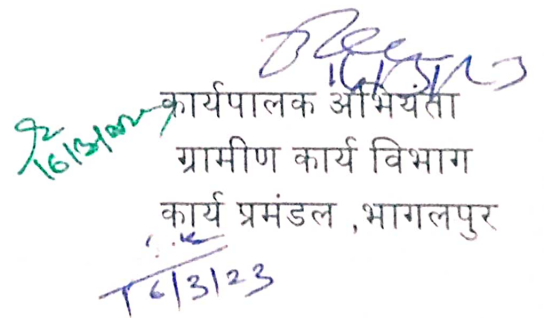 16/3/23
16/3/2023
कार्यपालक अभियंता
ग्रामीण कार्य विभाग
कार्य प्रमंडल ,भागलपुर
16/3/23